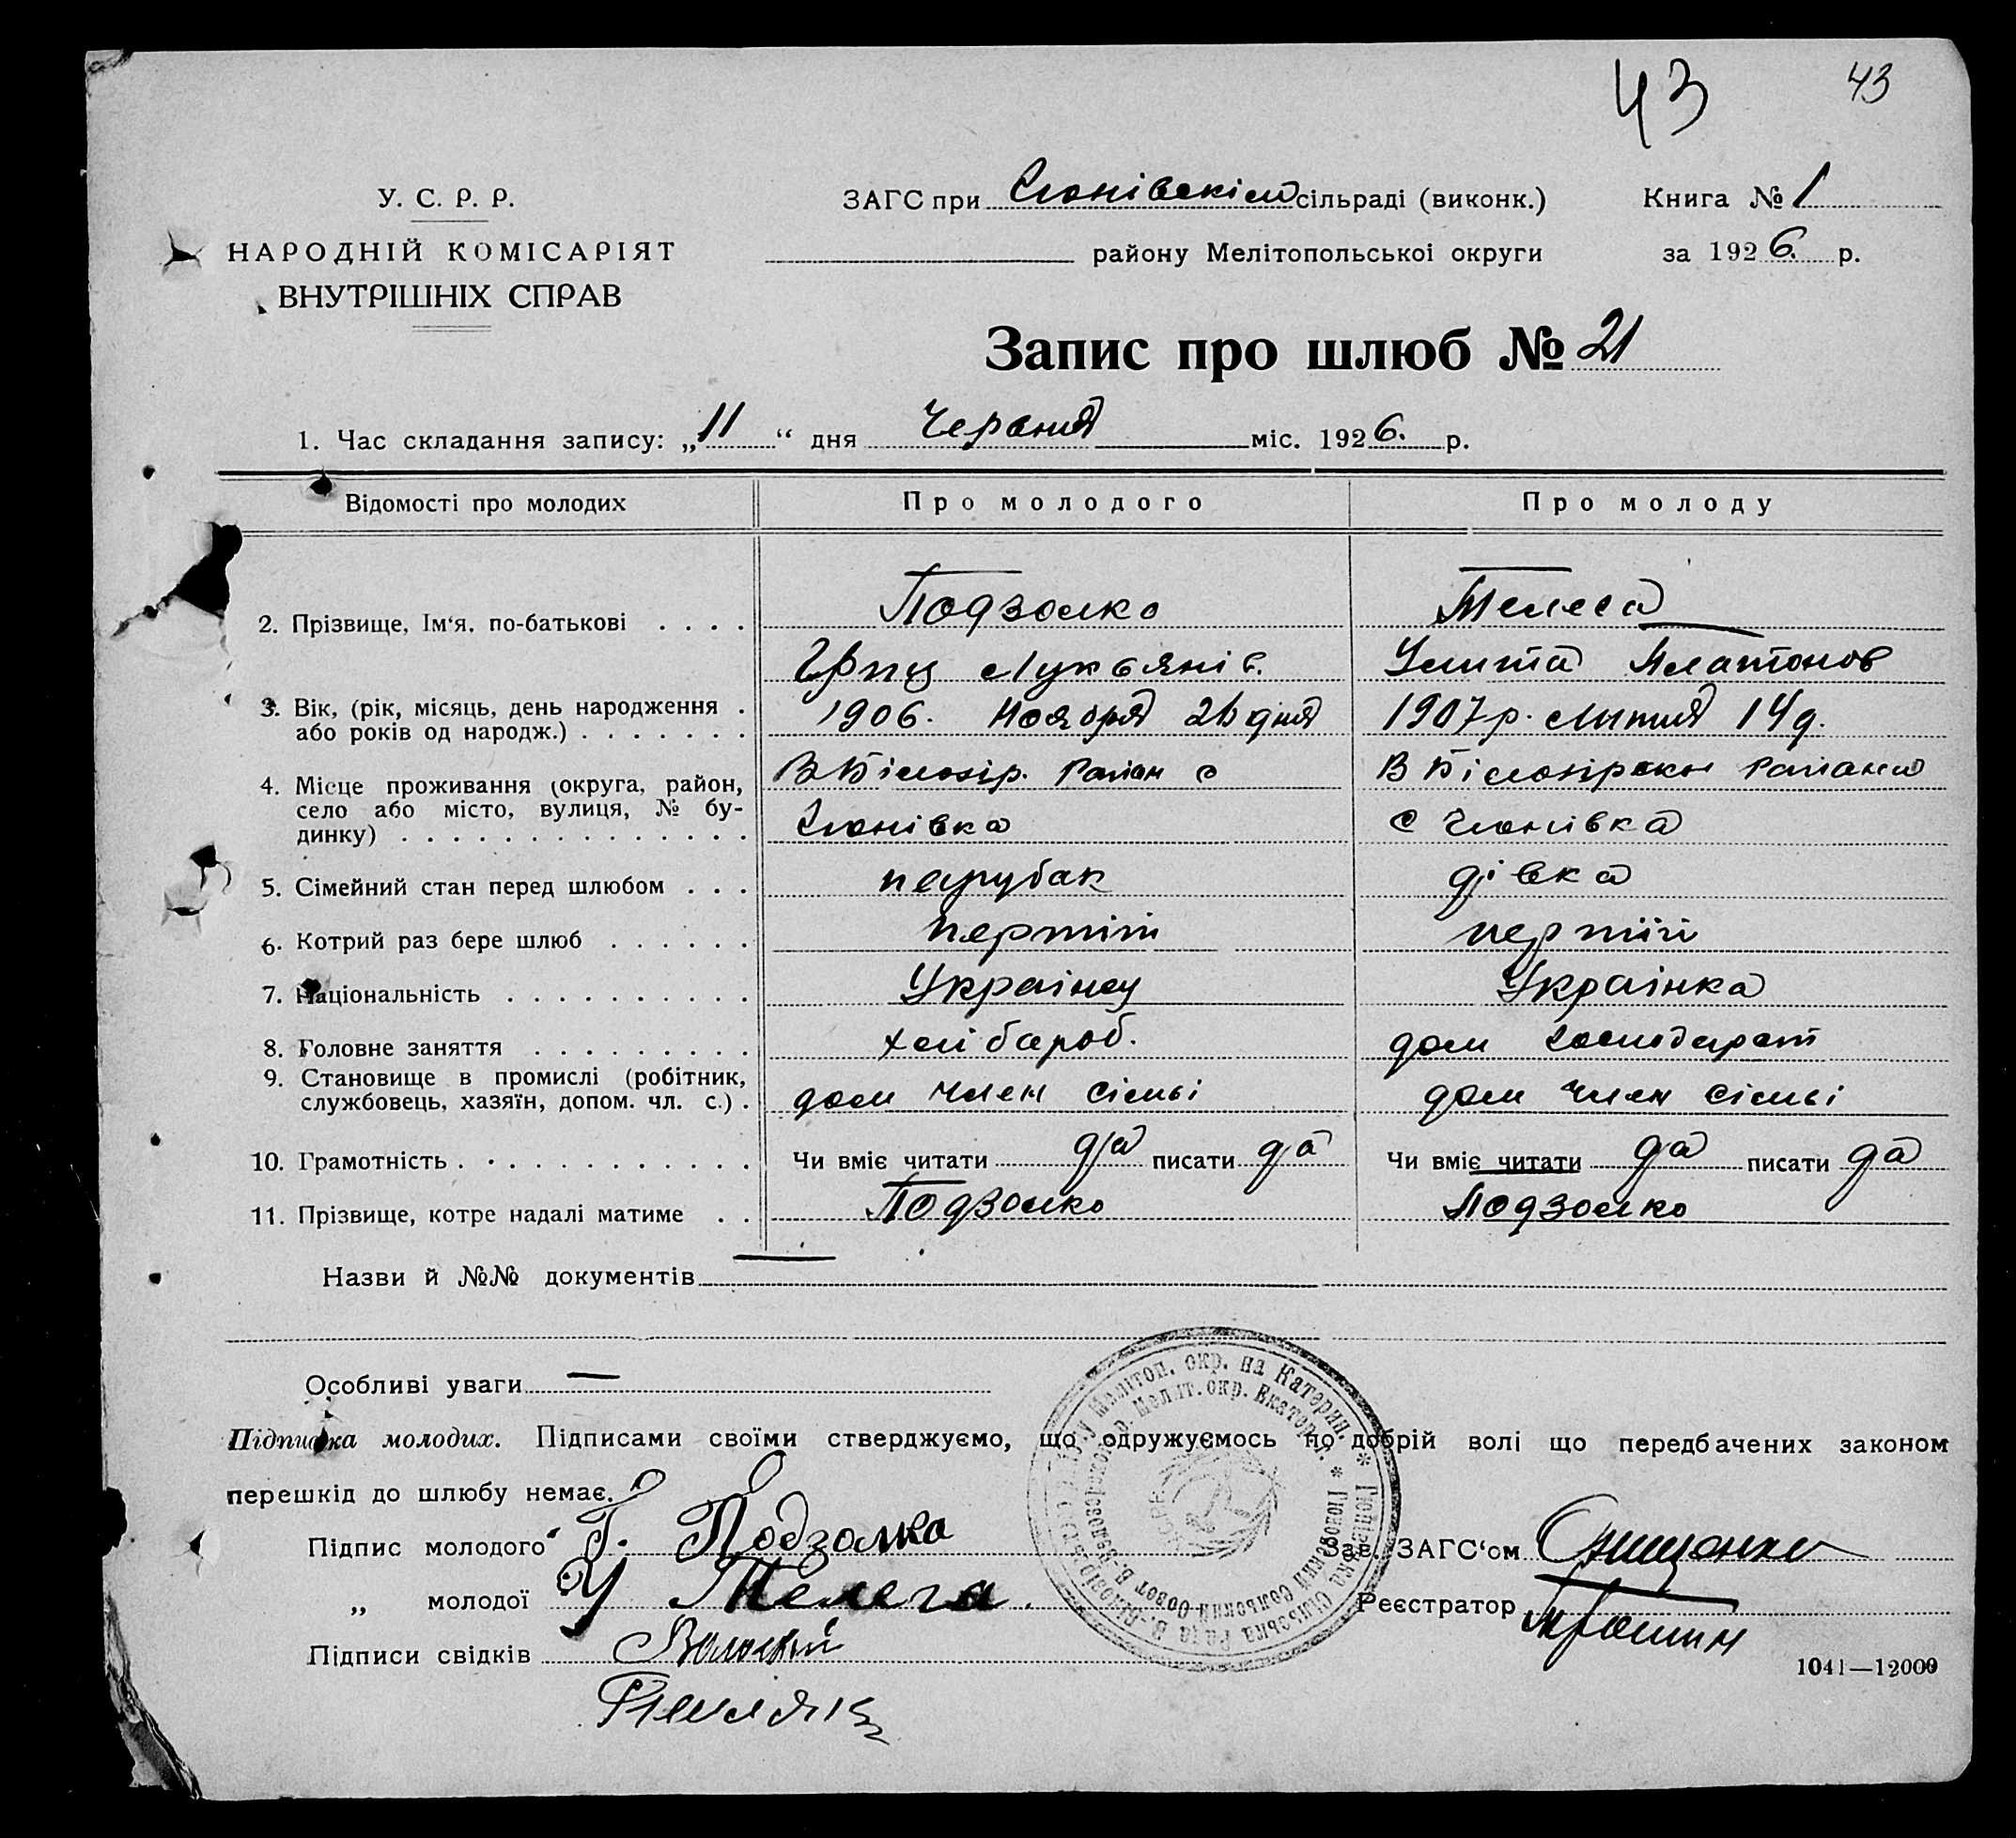 43 43
У. С. Р. Р.
НАРОДНІЙ КОМІСАРІЯТ
ВНУТРІШНІХ СПРАВ
ЗАГС при сільраді (виконк.)
району Мелітопольської округи
Книга № 1
за 1926. р.
Запис про шлюб № 21
1. Час складання запису: „11“ дня Червня міс. 1926. р.
Відомості про молодих Про молодого Про молоду
2. Прізвище, Ім‘я, по-батькові . . . . Подзолко Телега
Лукьянів. Улита Платонов
3. Вік, (рік, місяць, день народження .
або років од народж.) . . . . . . . 1906. Ноября 26 дня 1907 р. Липня 14 д.
4. Місце проживання (округа, район, В Білозір. Район с В Білозірском Районі
село або місто, вулиця, № бу-
динку) . . . . . . . . . . . . . . Гюнівка с Гюнівка
5. Сімейний стан перед шлюбом . . . парубак дівка
6. Котрий раз бере шлюб . . . . . . перший перший
7. Національність . . . . . . . . . . Украінец Украінка
8. Головне заняття . . . . . . . . . хлібароб. дом
9. Становище в промислі (робітник,
службовець, хазяїн, допом. чл. с.) . дом член сімьі дом член сімьі
10. Грамотність . . . . . . . . . . . . Чи вміє читати да писати да Чи вміє читати да писати да
11. Прізвище, котре надалі матиме . . Подзолко Подзолко
Назви й №№ документів —
Особливі уваги —
Підписка молодих. Підписами своїми стверджуємо, що одружуємось по добрій волі що передбачених законом
перешкід до шлюбу немає.
Підпис молодого Г. Подзолко
„ молодої У Телега.
Підписи свідків
Зав. ЗАГС‘ом Онищенко
Реєстратор
1041—12000
Мелітоп. окр. на Катерин. * Гюнівська Сільська Рада В.-Білозір
Мелит. окр. Екатер. г. * Гюновский Сельский Совет В.-Белозерского р.